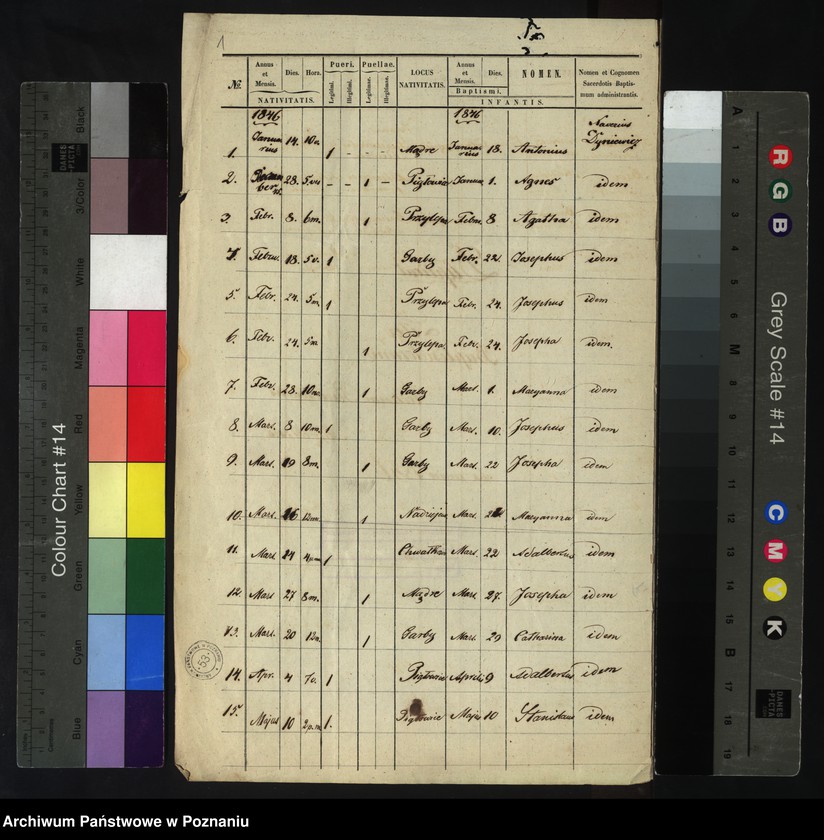 1
№
Annus et Mensis.
Dies.
Hora.
NATIVITATIS.
Pueri.
Legitimi.
Illegitimi.
Puellae.
Legitimae.
Illegitimae.
LOCUS NATIVITATIS.
Annus et Mensis.
Dies.
Baptismi.
NOMEN.
INFANTIS.
Nomen et Cognomen Sacerdotis Baptismum administrantis.
1846 1846
1. Januarius 14. 1 Mądre Januarius 18. Antonius
2. 28. 1 1. Agnes idem
3. Febr. 8. 6m. 1 Febr. 8 Agatha idem
4. Febru. 18. 5v. 1 Garby Febr. 22 Josephus idem
5. Febr. 24. 5m. 1 Przylepa Febr. 24. Josephus idem
6. Febr. 24. 5m 1 Przylepa Febr. 24. Josepha idem.
7. Febr. 28. 1 Garby Mart. 1. Maryanna idem
8. Mart. 8 10m. 1 Garby Mart. 10. Josephus idem
9. Mart. 19 8m. 1 Garby Mart. 22 Josepha idem
10. Mart. 16 1 Mart. Maryanna idem
11. Mart. 1 Mart. 22 Adalbertus idem
12. Mart 27 8m. 1 Mądre Mart. 27. Josepha idem
13. Mart. 20 1 Garby Mart. 29 Catharina idem
14. Apr. 4 7v. 1 Aprilis 9 Adalbertus idem
15. Majus 10 1. Majus 10 Stanislaus idem
53
Colour Chart #14
Black
3/Color
White
Magenta
Red
Yellow
Green
Cyan
Blue
DANES
PICTA
Grey Scale #14
R
G
B
C
M
Y
K
A
1
2
3
4
5
6
M
8
9
10
11
12
13
14
15
B
17
18
19
Archiwum Państwowe w Poznaniu